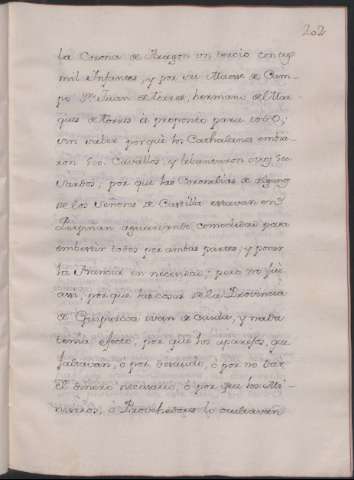 202
la Corona de Aragon un tercio con tres
mil Infantes, y por su Maese de Cam-
po Dn Juan de torres, hermano del Mar-
ques de torres à proposito para todo,
sin saber porquè los Cathalanes embia-
ron 500 Cavallos, y lebantaron otros
dados, por que las Coronelias de algunos
de los Señores de Castilla estavan en
aguardando comodidad para
embestir todos por ambas partes, y poner
la Francia en necesidad; pero no fue
asi, porque las cosas de la Provincia
de Guipuscoa ivan de caida, y nada
tenia efecto, por que los aparejos, que
faltavan, ò por descuido, ò por no dar
el dinero necesario, ò por que los Mi-
nistros, ò Proveedores lo ocultavan